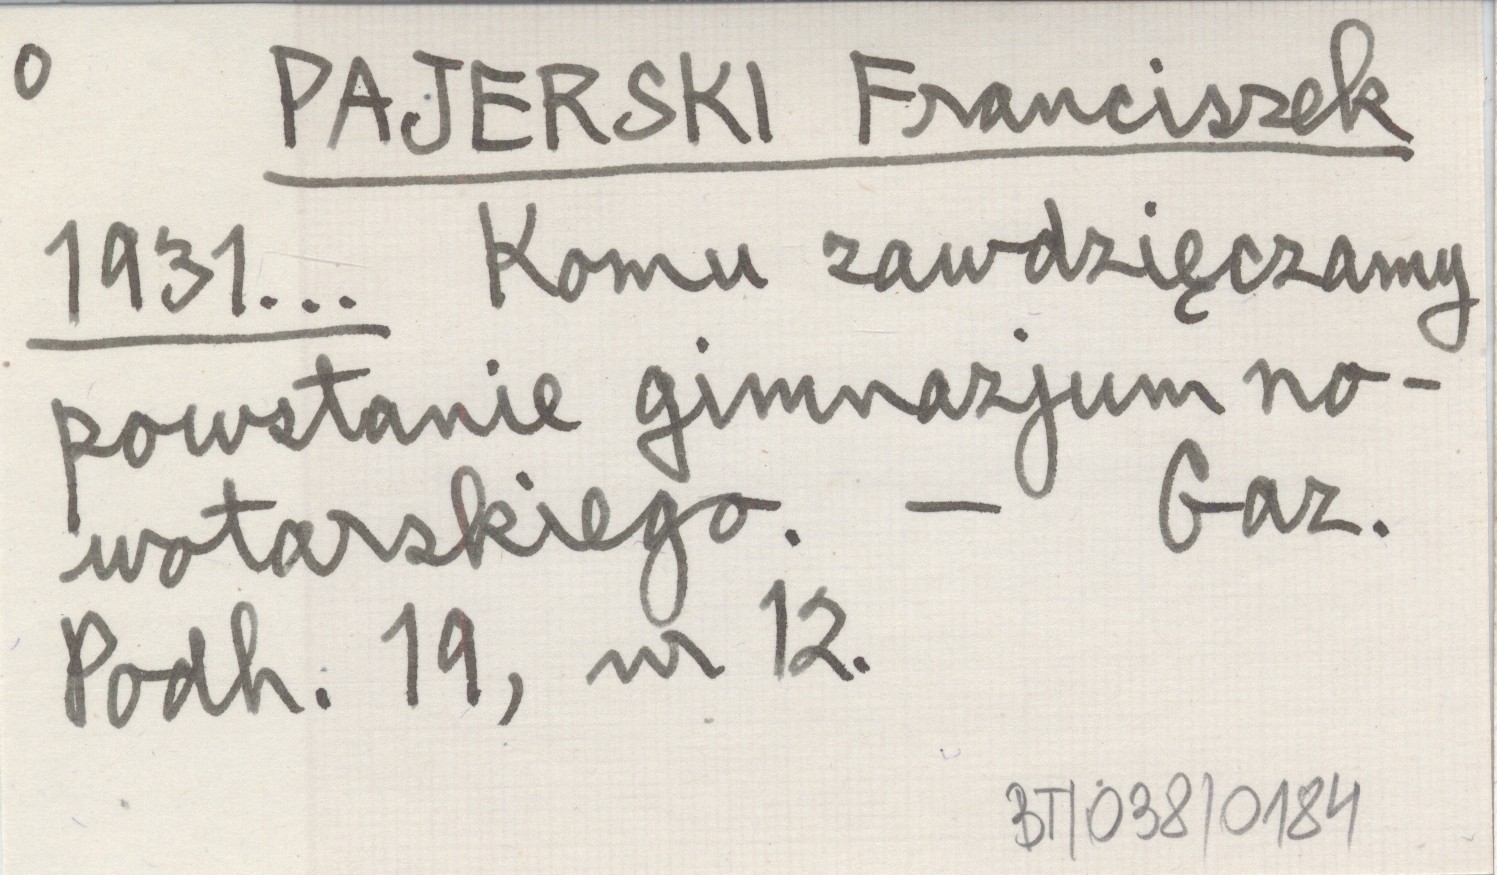 o PAJERSKI Franciszek
1931... Komu zawdzięczamy
powstanie gimnazjum no-
wotarskiego. — Gaz.
Podh. 19, nr 12.
BT/038/0184